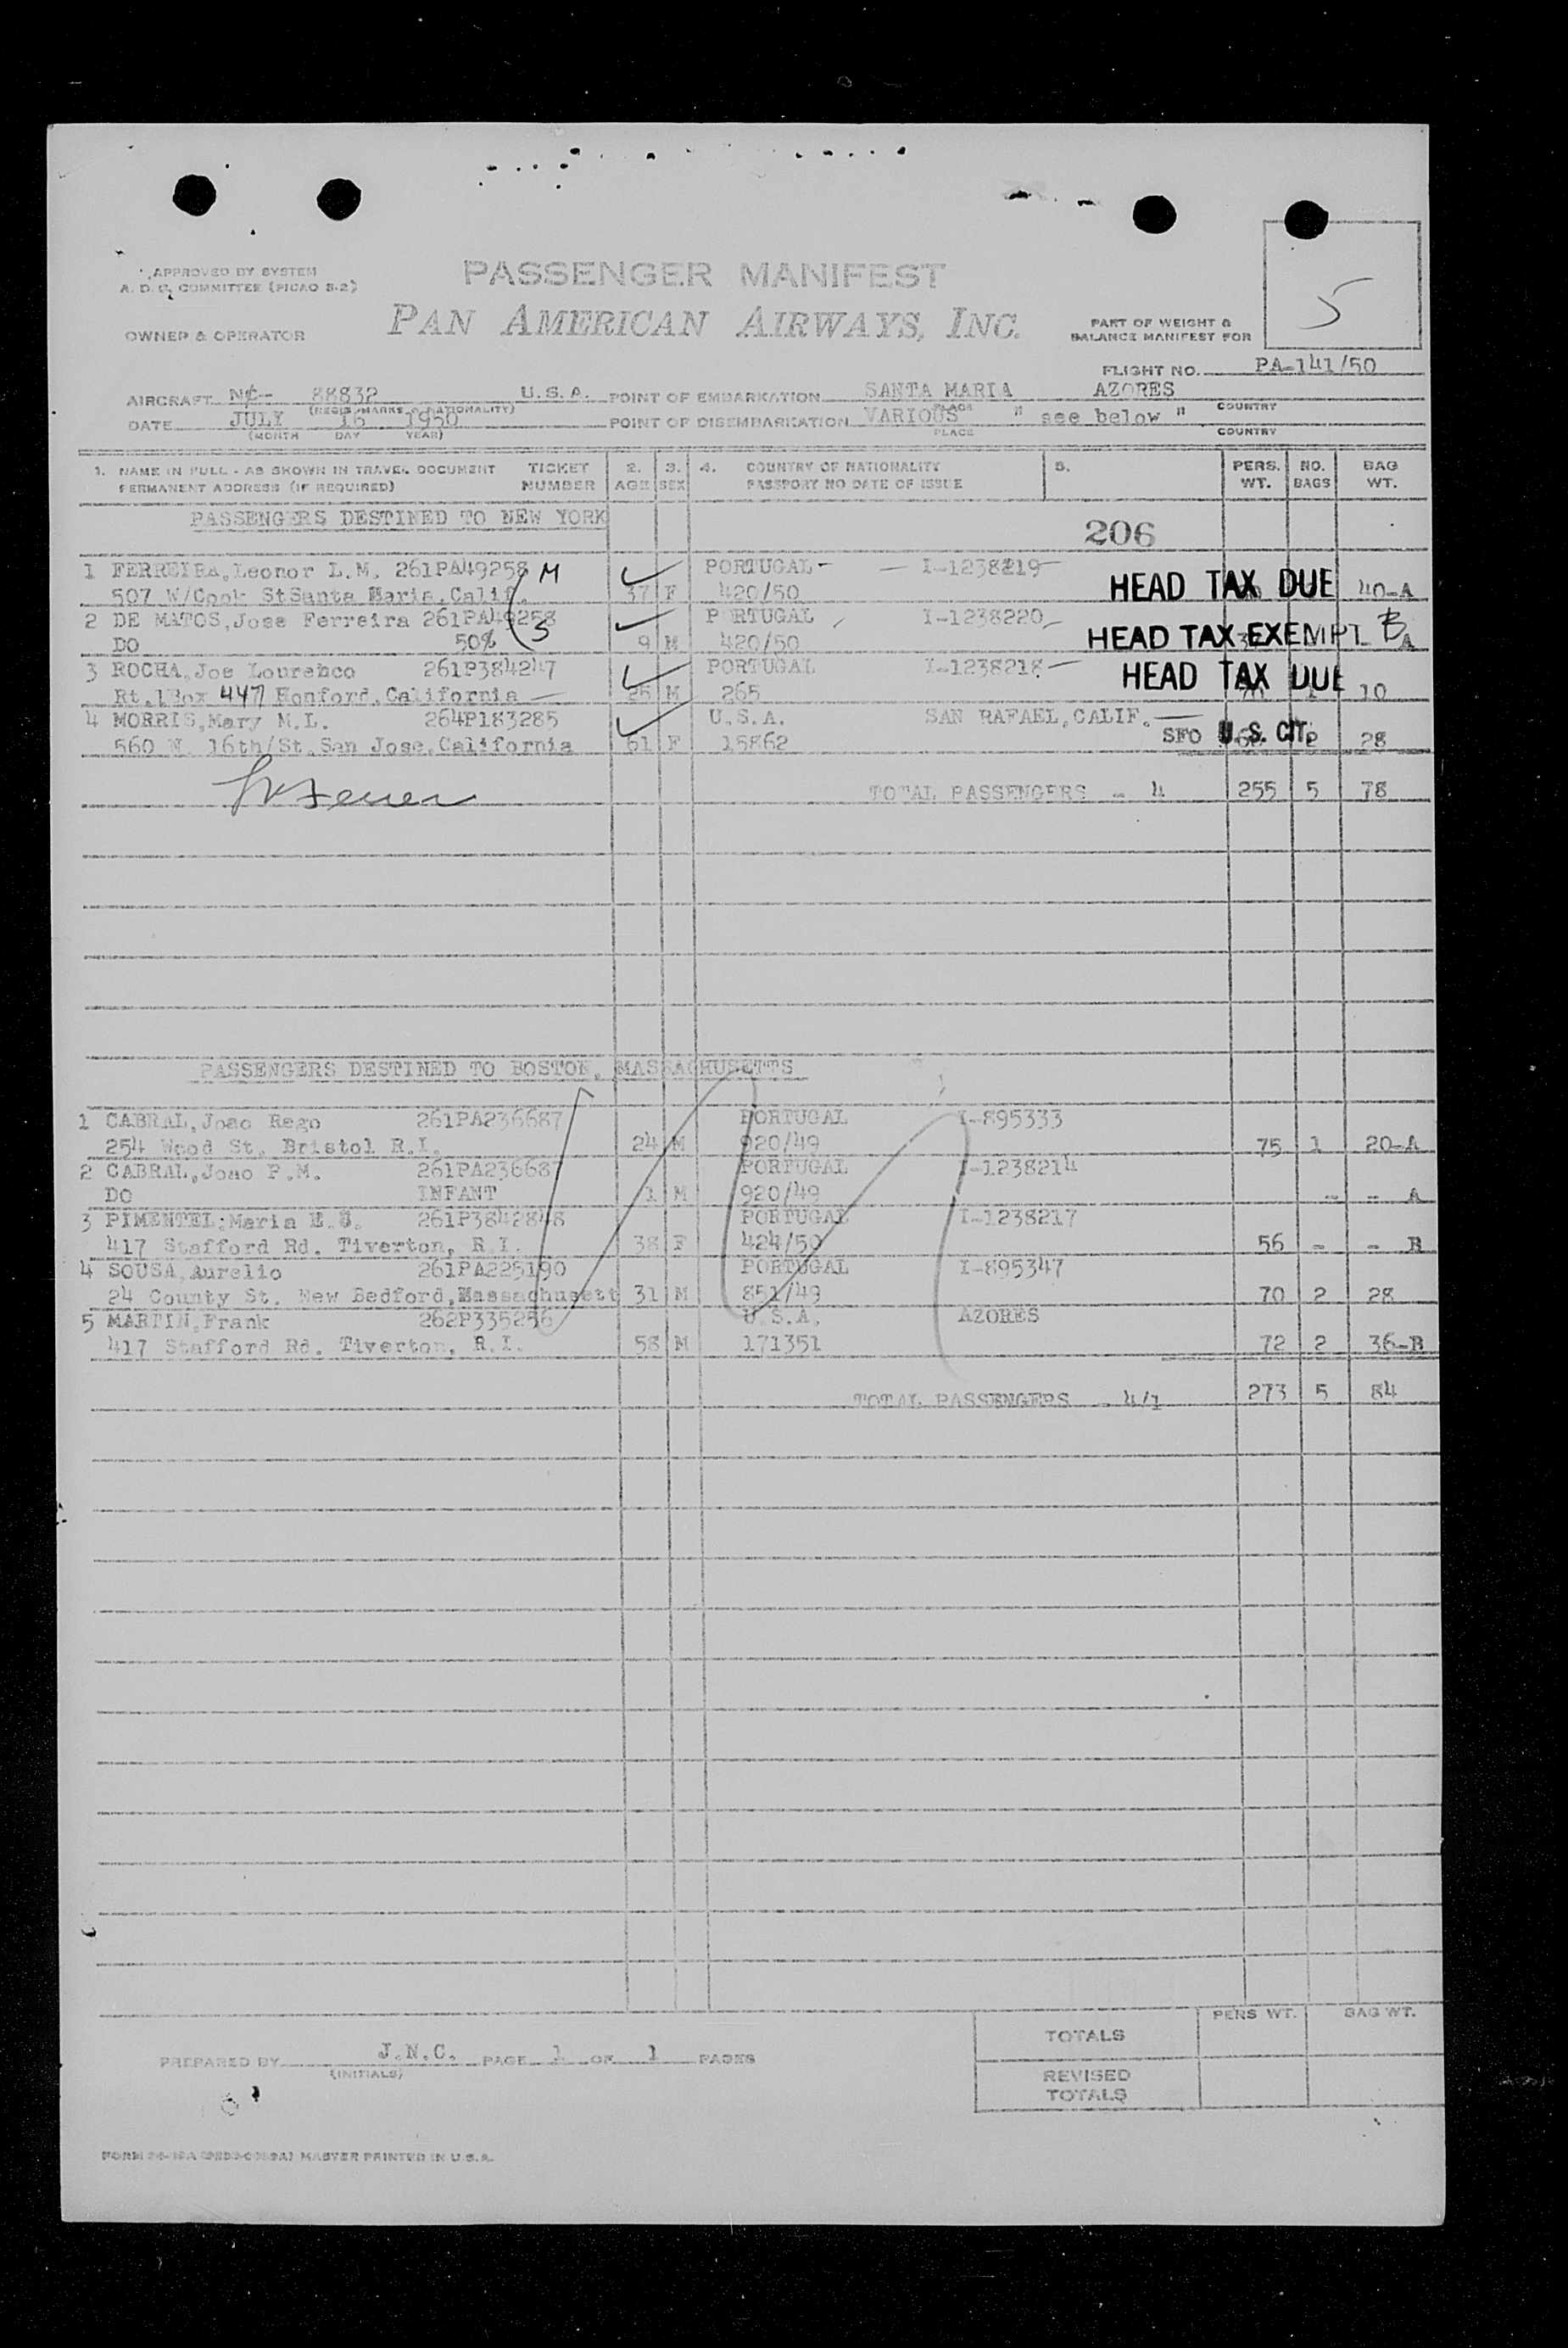 APPROVED BY SYSTEM
A. D. C. COMMITTEE (PICAO 8-2)
OWNER & OPERATOR
PASSENGER MANIFEST
PAN AMERICAN AIRWAYS, INC.
PART OF WEIGHT &
BALANCE MANIFEST FOR
5
FLIGHT NO. PA-141/50
AIRCRAFT NC-- 88832 U.S.A. POINT OF EMBARKATION SANTA MARIA AZORES
(REGIS. MARKS & NATIONALITY) PLACE COUNTRY
DATE JULY 16 1950 POINT OF DISEMBARKATION VARIOUS " see below "
(MONTH DAY YEAR) PLACE COUNTRY
1. NAME IN FULL - AS SHOWN IN TRAVEL DOCUMENT TICKET 2. 3. 4. COUNTRY OF NATIONALITY 5. PERS. NO. BAG
PERMANENT ADDRESS (IF REQUIRED) NUMBER AGE SEX PASSPORT NO DATE OF ISSUE WT. BAGS WT.
PASSENGERS DESTINED TO NEW YORK
206
1 FERREIRA,Leonor L.M. 261PA49258 M PORTUGAL - I-1238219
507 W/Cook StSanta Maria,Calif. 37 F 420/50 HEAD TAX DUE 40-A
2 DE MATOS,Jose Ferreira 261PA49258 PORTUGAL I-1238220
DO 50% S 9 M 420/50 HEAD TAX EXEMPT B A
3 ROCHA,Joe Lourenco 261P384247 PORTUGAL I-1238218
Rt.1Box 447 Honford,California 25 M 265 HEAD TAX DUE 10
4 MORRIS,Mary M.L. 264P183285 U.S.A. SAN RAFAEL,CALIF.
560 N. 16th/St.San Jose,California 61 F 15862 SFO U.S. CIT. 2 28
TOTAL PASSENGERS - 4 255 5 78
PASSENGERS DESTINED TO BOSTON, MASSACHUSETTS
1 CABRAL,Joao Rego 261PA236687 PORTUGAL I-895333
254 Wood St. Bristol R.I. 24 M 920/49 75 1 20-A
2 CABRAL,Joao P.M. 261PA236687 PORTUGAL I-1238214
DO INFANT 1 M 920/49 - - A
3 PIMENTEL,Maria E.S. 261P3842848 PORTUGAL I-1238217
417 Stafford Rd. Tiverton, R.I. 38 F 424/50 56 - - B
4 SOUSA,Aurelio 261PA225190 PORTUGAL I-895347
24 County St. New Bedford,Massachusett 31 M 851/49 70 2 28
5 MARTIN,Frank 262P335256 U.S.A. AZORES
417 Stafford Rd. Tiverton, R.I. 58 M 171351 72 2 36-B
TOTAL PASSENGERS - 4/1 273 5 84
PERS WT. BAG WT.
TOTALS
PREPARED BY J.N.C. PAGE 1 OF 1 PAGES
(INITIALS)
REVISED
TOTALS
MASTER PRINTED IN U.S.A.